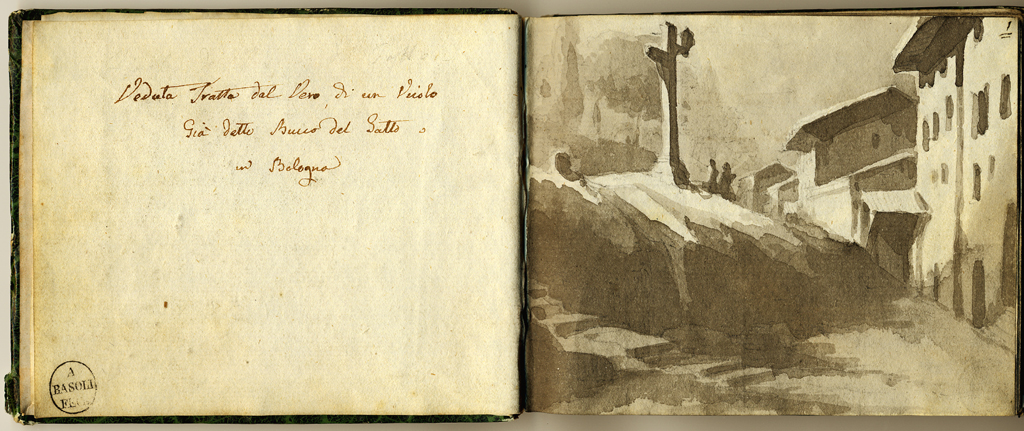 Veduta Tratta dal Vero, di un Vicolo
Già detto Bucco del Gatto
in Bologna
A
BASOLI
FECE
1